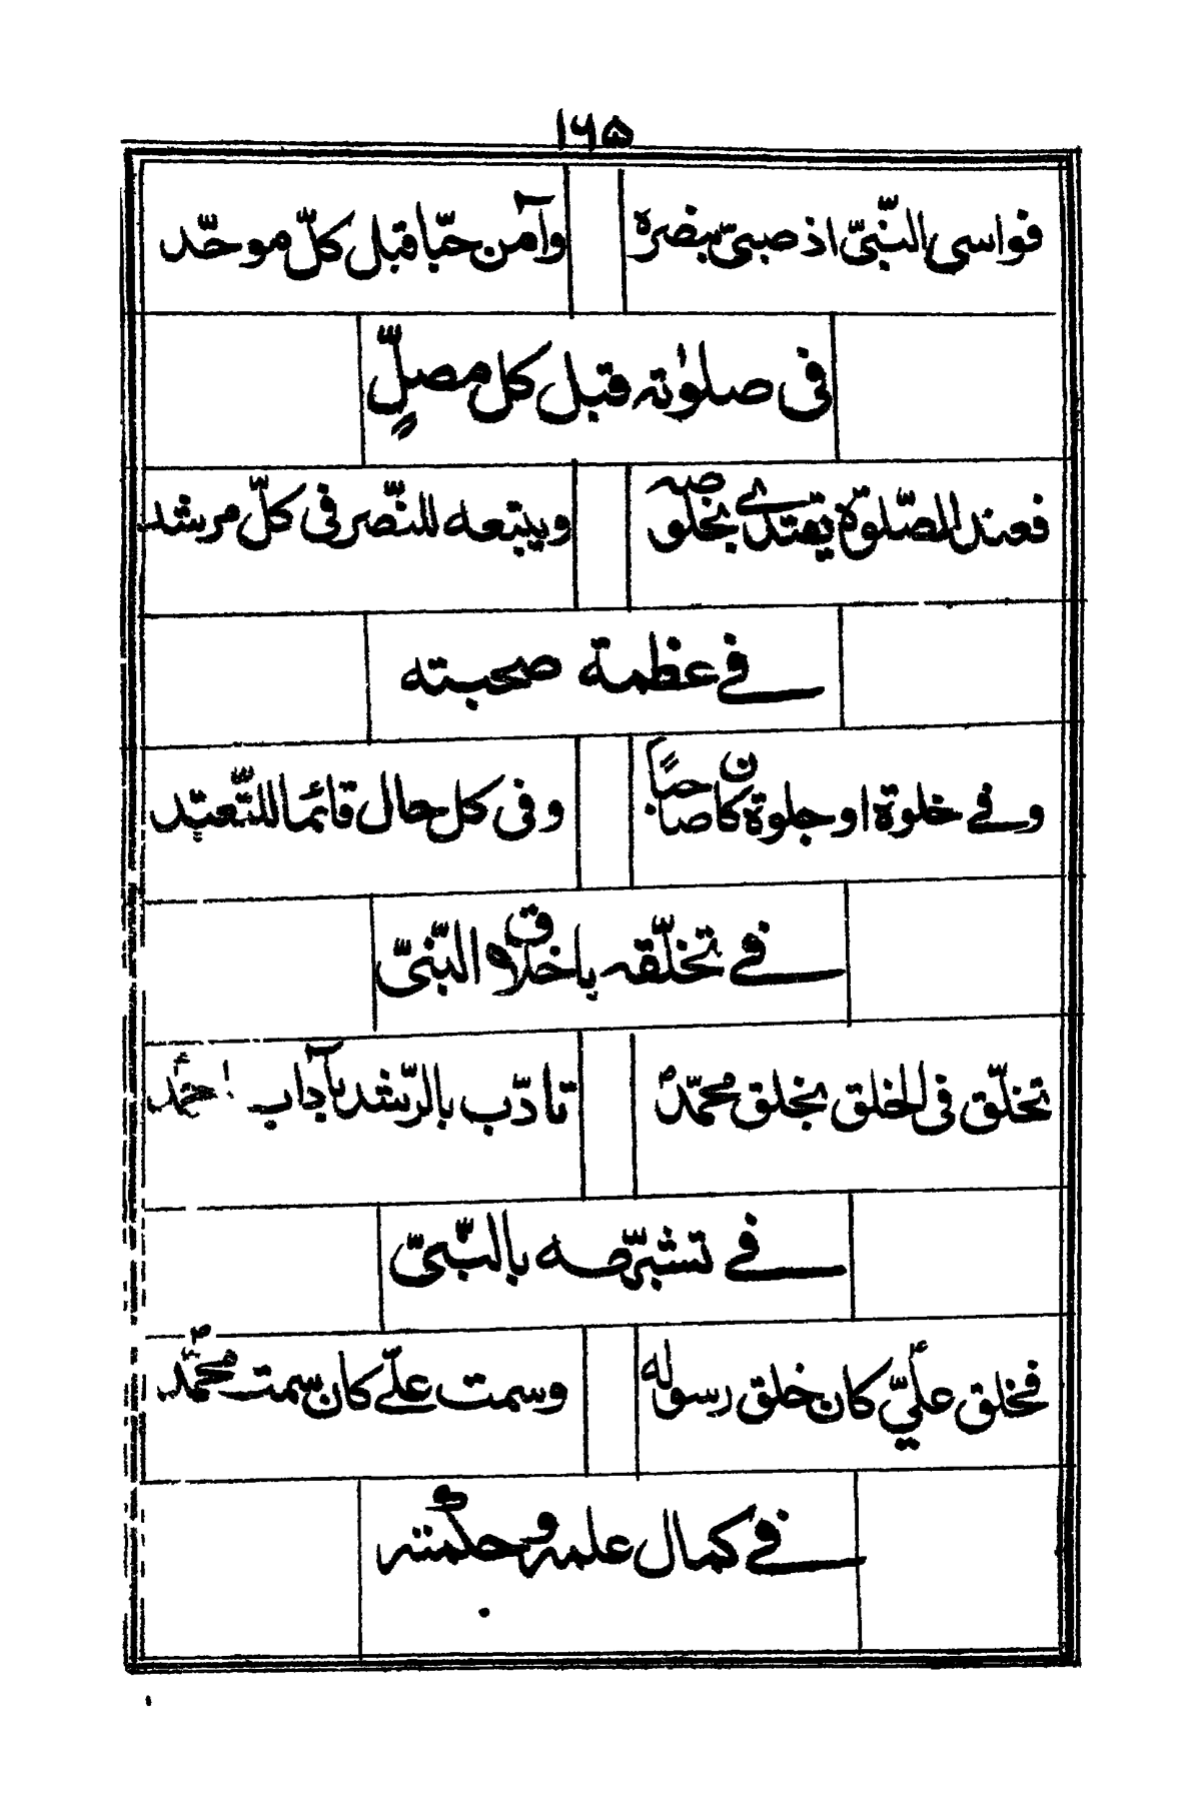 ۱۶۵
فواسی النّبیّ اذ صبیّ بنصره وآمن حبّا قبل کلّ موحّد
فی صلوٰته قبل کل مصلٍّ
فعند المصّلوة یقتدی بخلوصه ویتبعه للنّصر فی کلّ مرشد
فے عظمة صحبته
وفے خلوة او جلوة کان صاحبًا وفی کل حال قائما للتّعبّد
فے تخلّقه باخلاق النّبیّ
تخلّق فی الخلق بخلق محمّد تادّب بالرّشد بآداب احمد
فے تشبّهه بالنّبیّ
فخلق علیّ کان خلق رسوله وسمت علیّ کان سمت محمّد
فے کمال علمه وحکمته